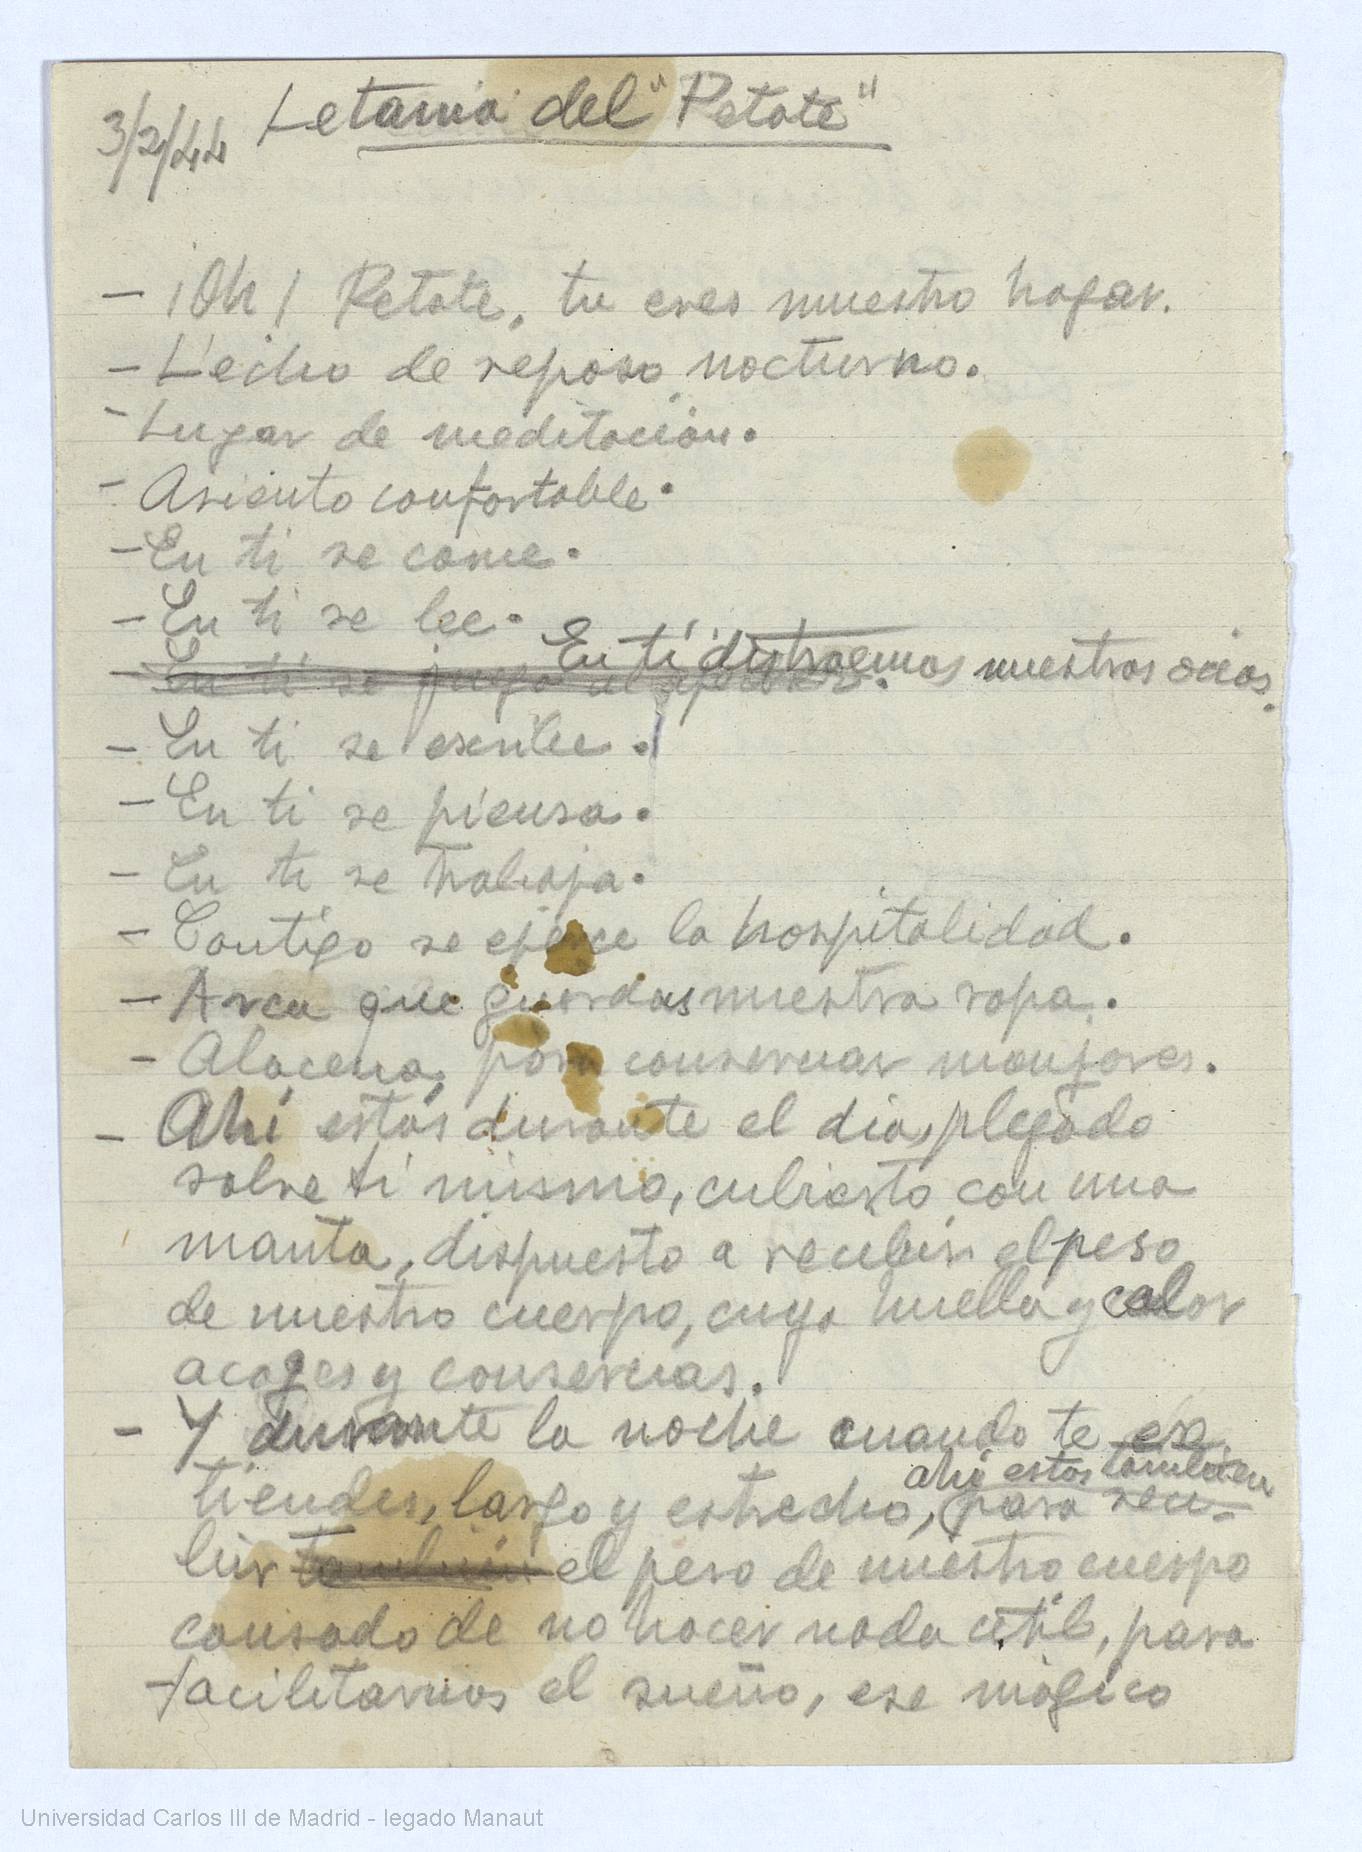 3/2/44 Letania del "Petate"
- ¡Oh! Petate, tu eres nuestro hogar.
- Lecho de reposo nocturno.
- Lugar de meditación.
- Asiento confortable.
- En ti se come.
- En ti se lee.
En ti distraemos nuestros ocios.
- En ti se juega al ajedrez.
- En ti se escribe.
- En ti se piensa.
- En ti se trabaja.
- Contigo se ejerce la hospitalidad.
- Arca que guardas nuestra ropa.
- Alacena, para conservar manjares.
- Ahí estás durante el dia, plegado
sobre ti mismo, cubierto con una
manta, dispuesto a recibir el peso
de nuestro cuerpo, cuya huella y calor
acoges y conservas.
- Y durante la noche cuando te ex
ahí estas también
tiendes, largo y estrecho, para reci-
bir también el peso de nuestro cuerpo
cansado de no hacer nada útil, para
facilitarnos el sueño, ese mágico
Universidad Carlos III de Madrid - legado Manaut